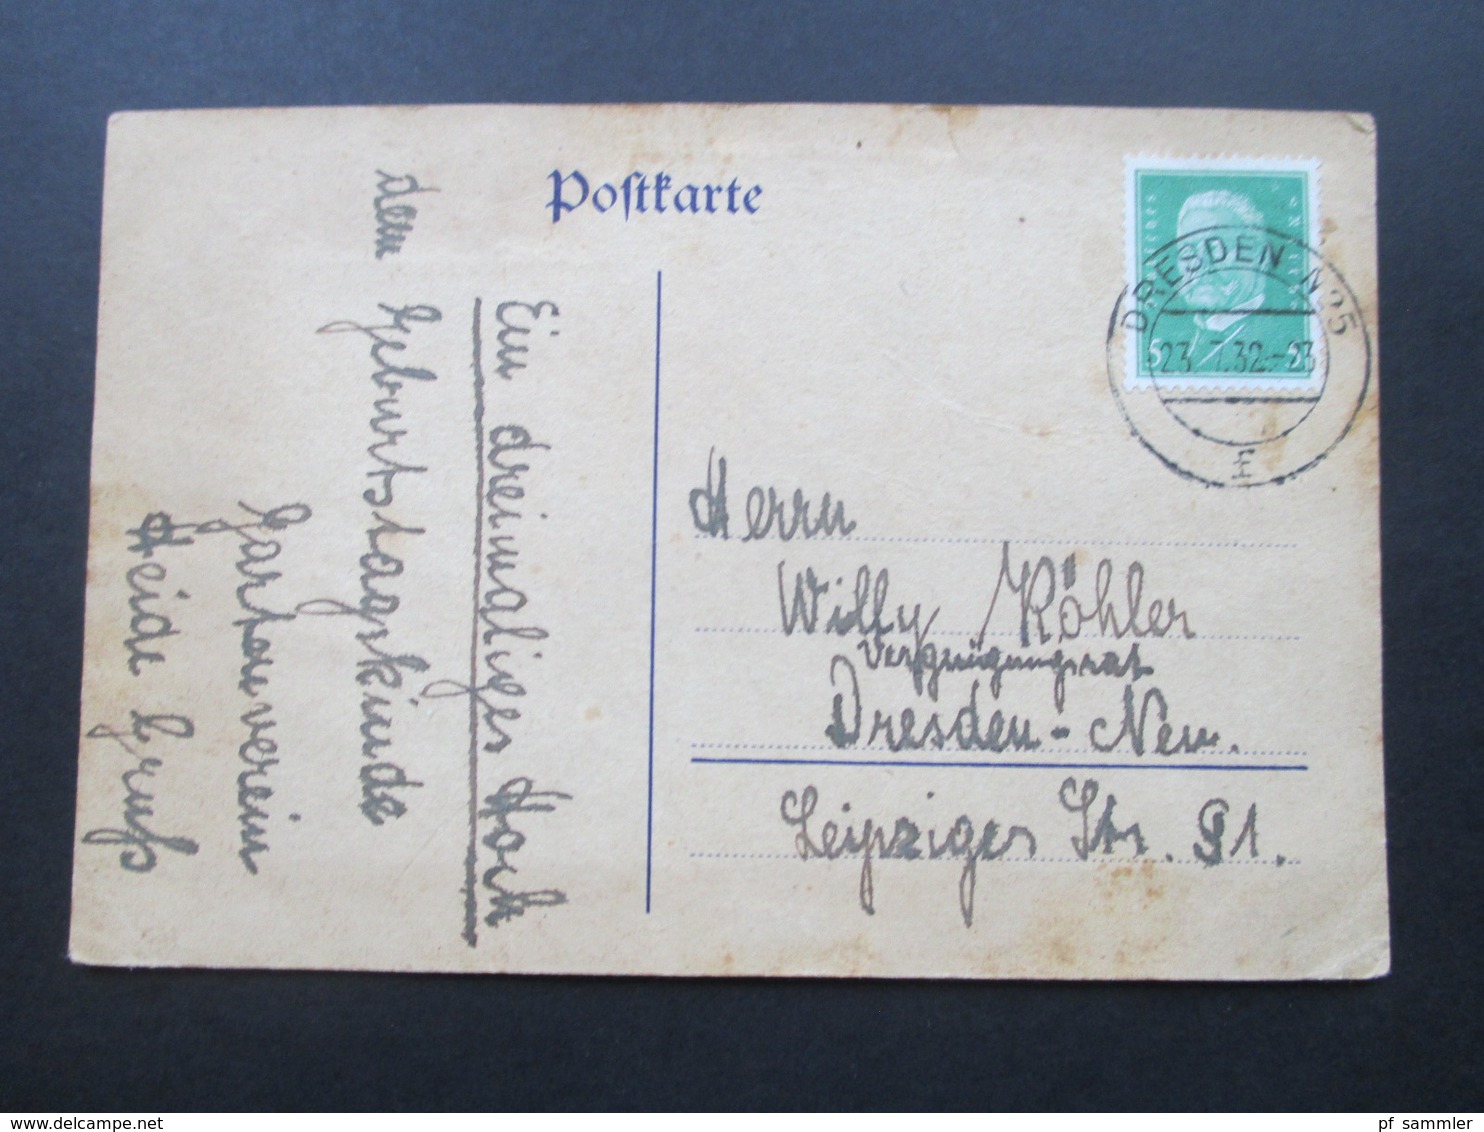 Postkarte
Ein dreimaliges Hoch
dem Geburtstagskinde
Gartenverein
Heide Gruß
DRESDEN N25
23.7.32.-23
5 5
Herrn
Willy Köhler
Vergnügungsrat
Dresden-Neu.
Leipziger Str. 91.
pf_sammler